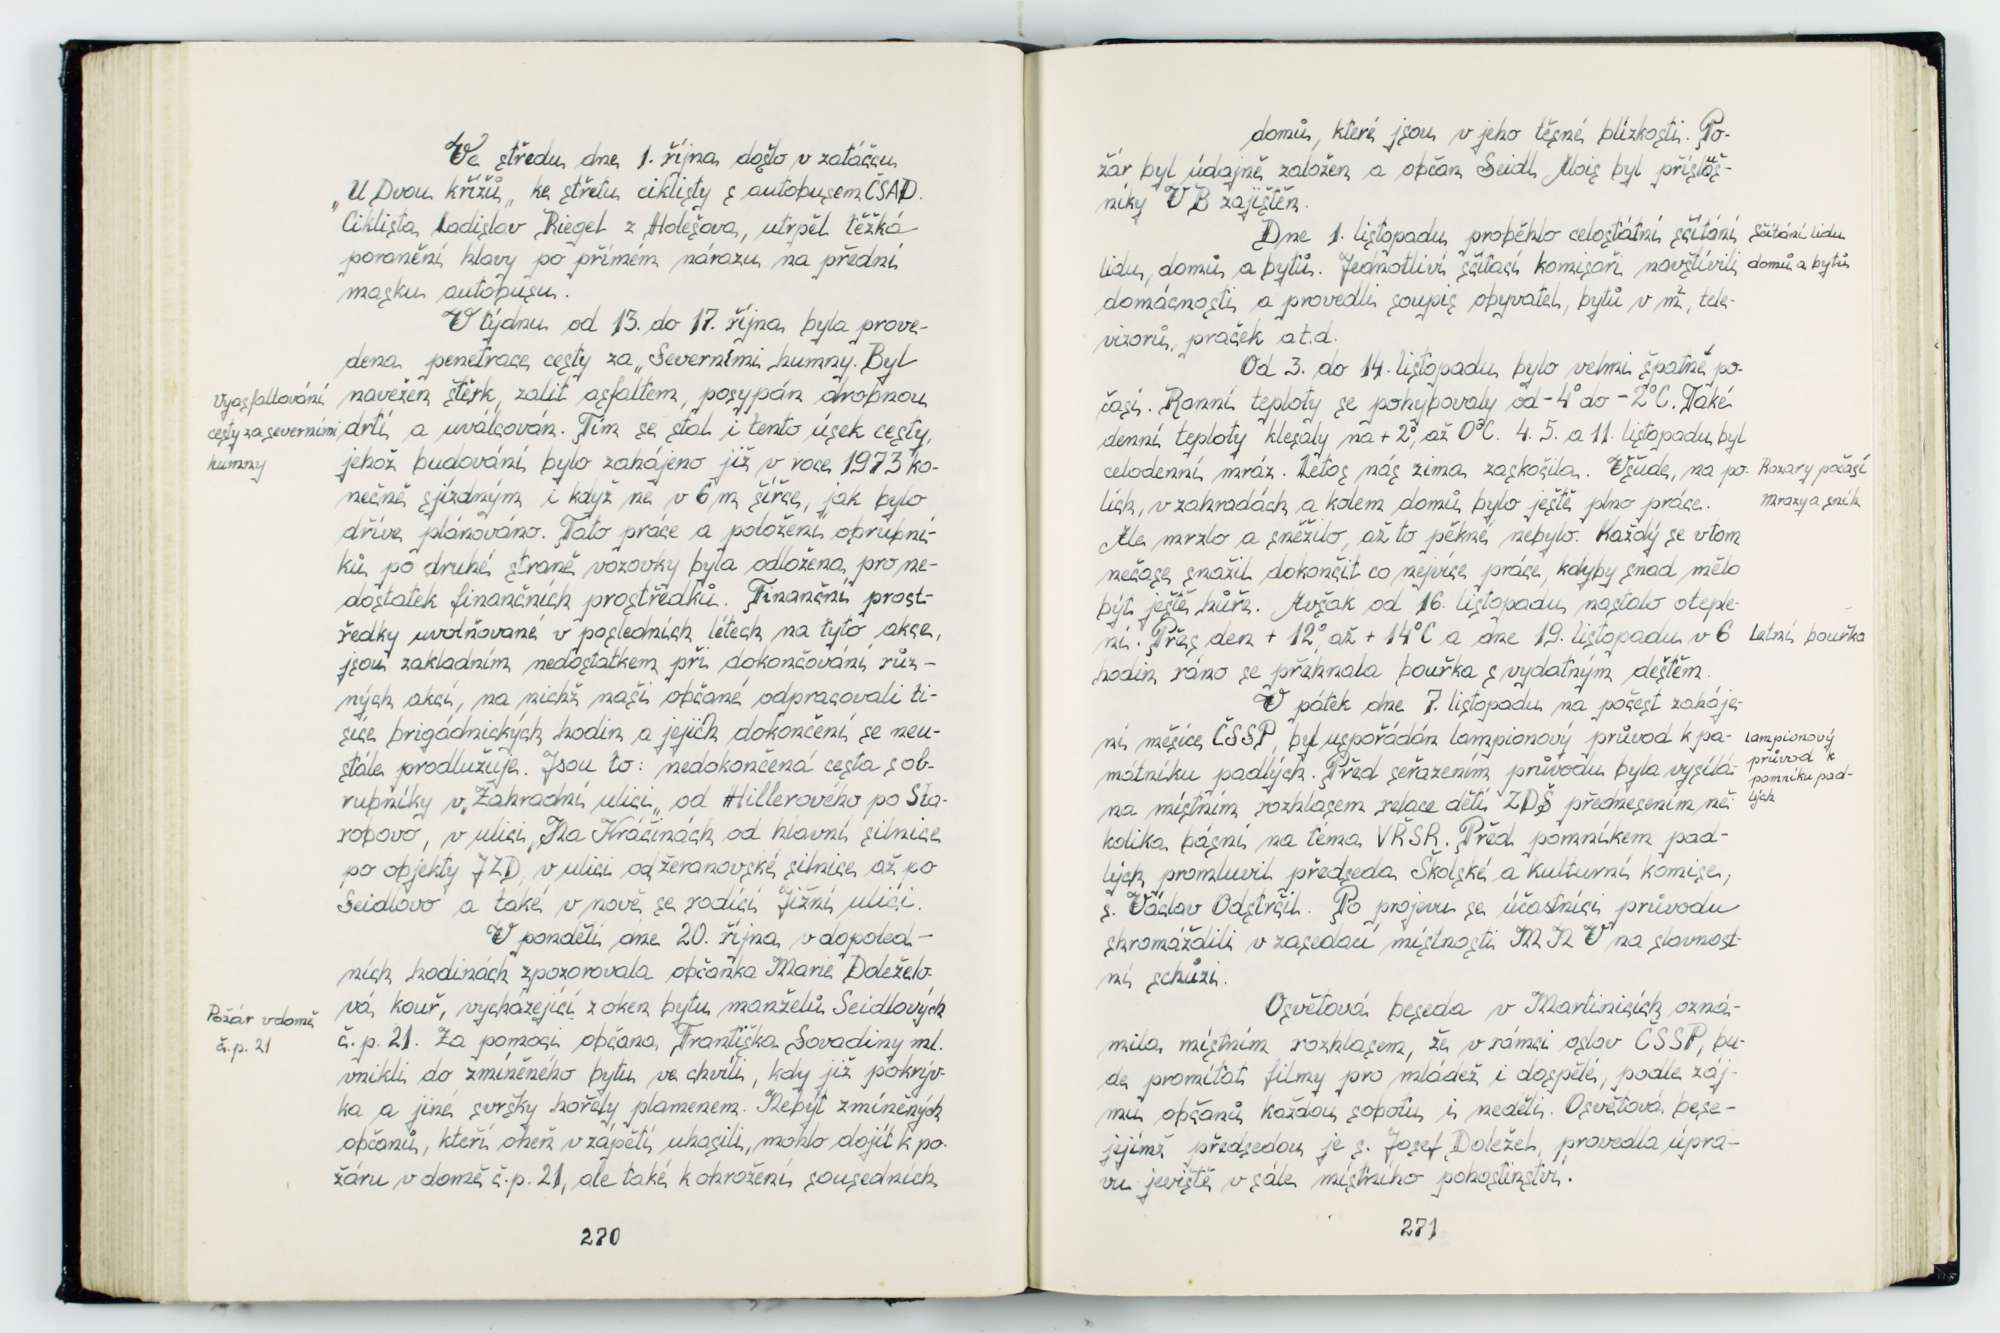 Ve středu dne 1. října došlo v zatáčcu
„U Dvou křížů„ ke střetu ciklisty s autobusem ČSAD.
Ciklista Ladislav Riegel z Holešova, utrpěl těžká
poranění hlavy po přímém nárazu na přední
masku autobusu.
V týdnu od 13. do 17. října byla prove-
dena penetrace cesty za „Severními humny. Byl
Vyasfaltování
navežen štěrk, zalit asfaltem, posypán drobnou
cesty za severními
drtí a uválcován. Tím se stal i tento úsek cesty,
humny
jehož budování bylo zahájeno již v roce 1973 ko-
nečně sjízdným i když ne v 6 m šířce, jak bylo
dříve plánováno. Tato práce a položení obrubní-
ků po druhé straně vozovky byla odložena pro ne-
dostatek finančních prostředků. Finanční prost-
ředky uvolňované v posledních létech na tyto akce,
jsou zakladním nedostatkem při dokončování růz-
ných akcí, na nichž naši občané odpracovali ti-
síce brigádnických hodin a jejich dokončení se neu-
stále prodlužuje. Jsou to: nedokončená cesta s ob-
rubníky v „Zahradní ulici„ od Hillerového po Sta-
robovo, v ulici „Na Kráčinách od hlavní silnice
po objekty JZD, v ulici od žeranovské silnice až po
Seidlovo a také v nově se rodící Jižní ulici.
V pondělí dne 20. října v dopoled-
ních hodinách zpozorovala občanka Marie Doležalo-
Požár v domě
vá kouř, vycházející z oken bytu manželů Seidlových
č.p. 21
č.p. 21. Za pomoci občana Františka Sovadiny ml.
vnikli do zmíněného bytu ve chvíli, kdy již pokrýv-
ka a jiné svršky hořely plamenem. Nebýt zmíněných
občanů, kteří oheň vzápětí uhasili, mohlo dojít k po-
žáru v domě č.p. 21, ale také k ohrožení sousedních
270
domů, které jsou v jeho těsné blízkosti. Po-
žár byl údajně založen a občan Seidl Alois byl příslůš-
níky VB zajištěn.
Dne 1. listopadu proběhlo celostátní sčítání
Sčítání lidu
lidu, domů a bytů. Jednotliví sčítací komisaři navštívili
domů a bytů
domácnosti a provedli soupis obyvatel, bytů v m², tele-
vizorů, praček a t.d.
Od 3. do 14. listopadu bylo velmi špatné po-
časí. Ranní teploty se pohybovaly od -4° do -2°C. Také
denní teploty klesaly na +2°, až 0°C. 4. 5. a 11. listopadu byl
celodenní mráz. Letos nás zima zaskočila. Všude, na po-
Rozary počasí
lích, v zahradách a kolem domů bylo ještě plno práce.
mrazy a sníh
Ale mrzlo a sněžilo, až to pěkné nebylo. Každý se v tom
nečase snažil dokončit co nejvíce práce, kdyby snad mělo
být ještě hůře. Avšak od 16. listopadu nastalo oteple-
ní. Přes den +12°, až +14°C a dne 19. listopadu v 6
Letní bouřka
hodin ráno se přehnala bouřka s vydatným deštěm.
V pátek dne 7. listopadu na počest zaháje-
ní měsíce ČSSP, byl uspořádán lampionový průvod k pa-
Lampionový
mátníku padlých. Před seřazením průvodu byla vysílá-
průvod k
pomníku pad-
na místním rozhlasem relace dětí ZDŠ přednesením ně-
lých
kolika básní na téma VŘSR. Před pomníkem pad-
lých promluvil předseda Školské a kulturní komise,
s. Václav Odstrčil. Po projevu se účastníci průvodu
shromáždili v zasedací místnosti MNV na slavnost-
ní schůzi.
Osvětová beseda v Martinicích ozná-
mila místním rozhlasem, že v rámci oslav ČSSP, bu-
de promítat filmy pro mládež i dospělé, podle záj-
mu občanů každou sobotu i neděli. Osvětová bese-
jejímž předsedou je s. Josef Doležel, provedla úpra-
vu jeviště v sále místního pohostinství.
271